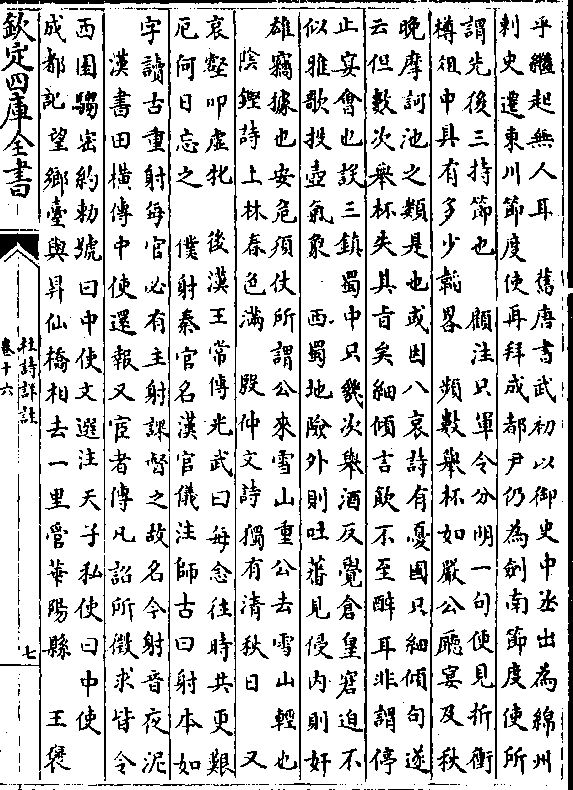 乎繼起無人耳　舊唐書武初以御史中丞出為綿州
刺史遷東川節度使再拜成都尹仍為劍南節度使所
謂先後三持節也　顧注只軍令分明一句便見折衝
樽俎中具有多少韜畧　頻數舉杯如嚴公廳宴及秋
晚摩訶池之類是也或因八哀詩有憂國只細傾句遂
云但數次舉杯失其旨矣細傾言飲不至醉耳非謂停
止宴會也說三鎮蜀中只幾次舉酒反覺倉皇窘迫不
似雅歌投壺氣象　西蜀地險外則吐蕃見侵内則奸
雄竊據也安危須仗所謂公來雪山重公去雪山輕也
陰鏗詩上林春色滿　殷仲文詩獨有清秋日　又
哀壑叩虛牝　後漢王常傳光武曰每念往時共更艱
厄何日忘之　僕射秦官名漢官儀注師古曰射本如
字讀古重射每官必有主射課督之故名今射音夜泥
漢書田横傳中使還報又宦者傳凡詔所徵求皆令
西園騶密約勅號曰中使文選注天子私使曰中使
成都記望鄉臺與昇仙橋相去一里管華陽縣　王褒
欽定四庫全書
杜詩詳註
卷十六
七